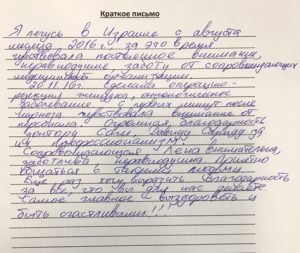 Краткое письмо
Я лечусь в Израиле с августа
месяца 2016 г. за это время
чувствовала постоянное внимание,
неравнодушие, заботу от сопровождающих
медицинской организации.
20.11.16г сделали операцию
онкологическое
заболевание. с первых минут после
чувствовала внимание от
персонала. Огромная благодарность
доктора Саги, Давиду
их профессионализм.
Сопровождающая Лена внимательна,
заботлива неравнодушна приятно
общаться с такими людьми
Еще раз хочу выразить благодарность
за все, что вы для нас делаете.
Самое главное выздороветь и
быть счастливыми!!!